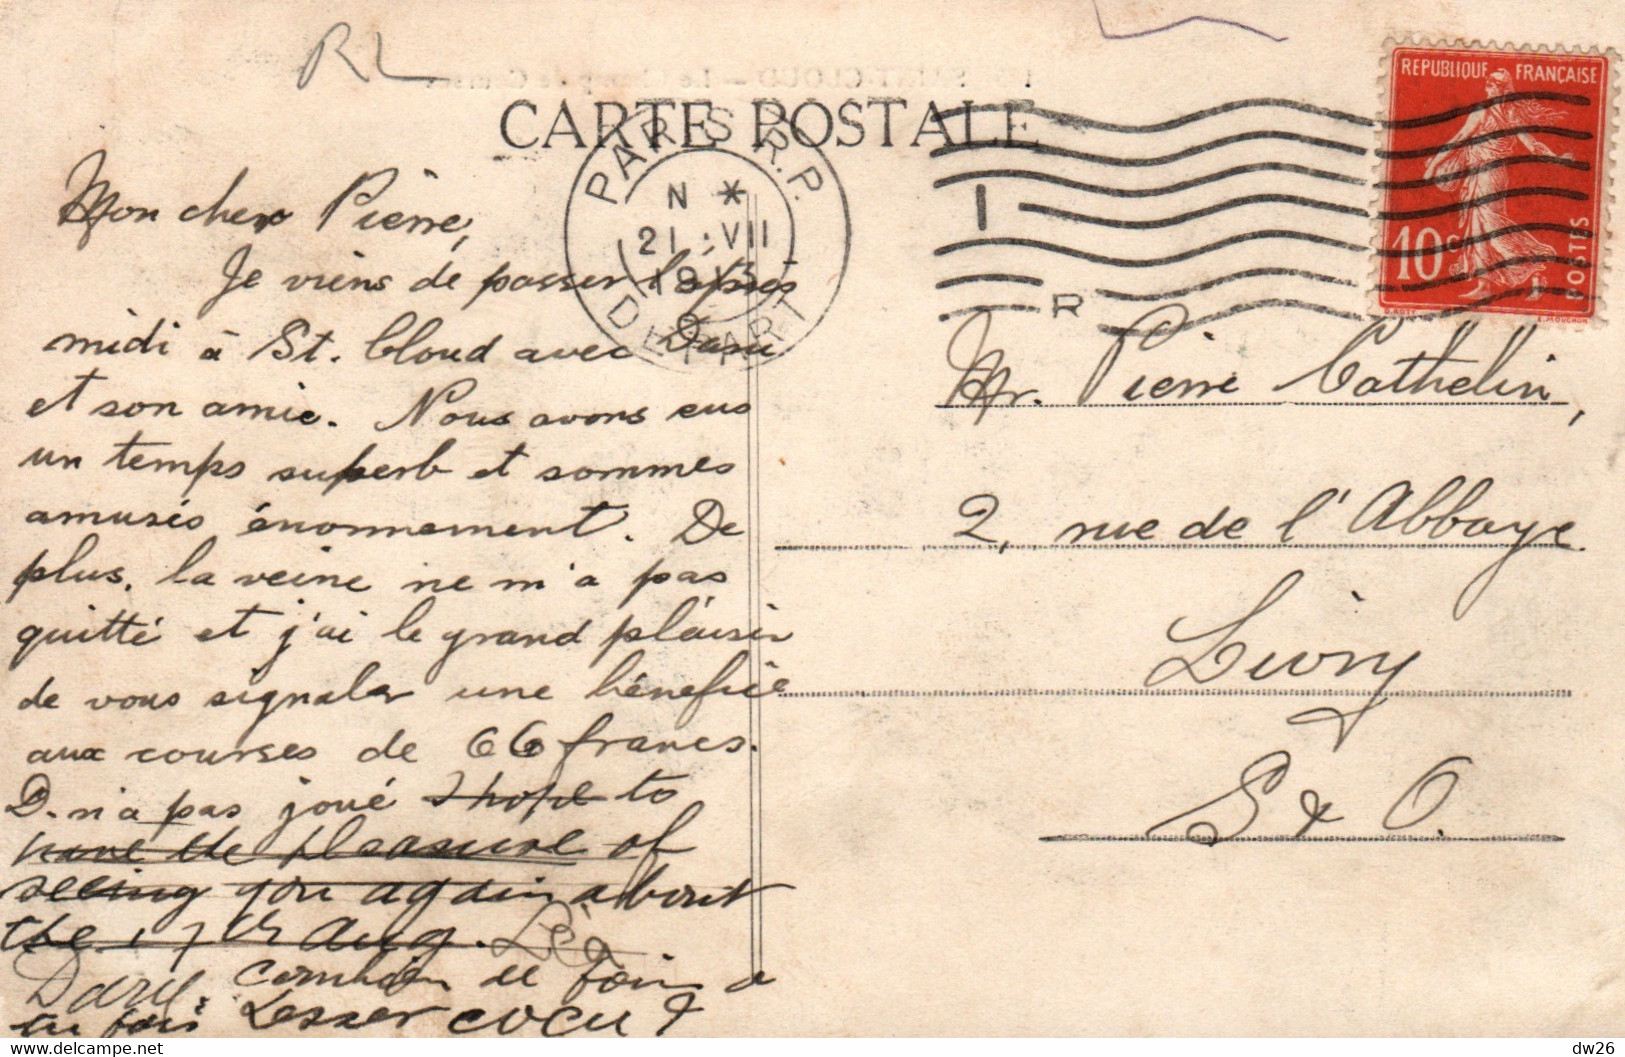 RL
CARTE POSTALE
PARIS R.P.
N *
21 · VII
1913
DEPART
I
R
REPUBLIQUE FRANÇAISE
10c
POSTES
Mon cher Pierre,
Je viens de passer l'après
midi à St. Cloud avec Daru
et son amie. Nous avons eus
un temps superb et sommes
amusés énormement. De
plus, la veine ne m'a pas
quitté et j'ai le grand plaisir
de vous signaler une bénefice
aux courses de 66 francs.
D. n'a pas joué I hope to
have the pleasure of
seeing you again about
the 17th Aug. Léo
Daru. combien de fois a
tu fais Lesser COCU ?
Mr. Pierre Cathelin,
2, rue de l'Abbaye
Livry
S & O.
dw26